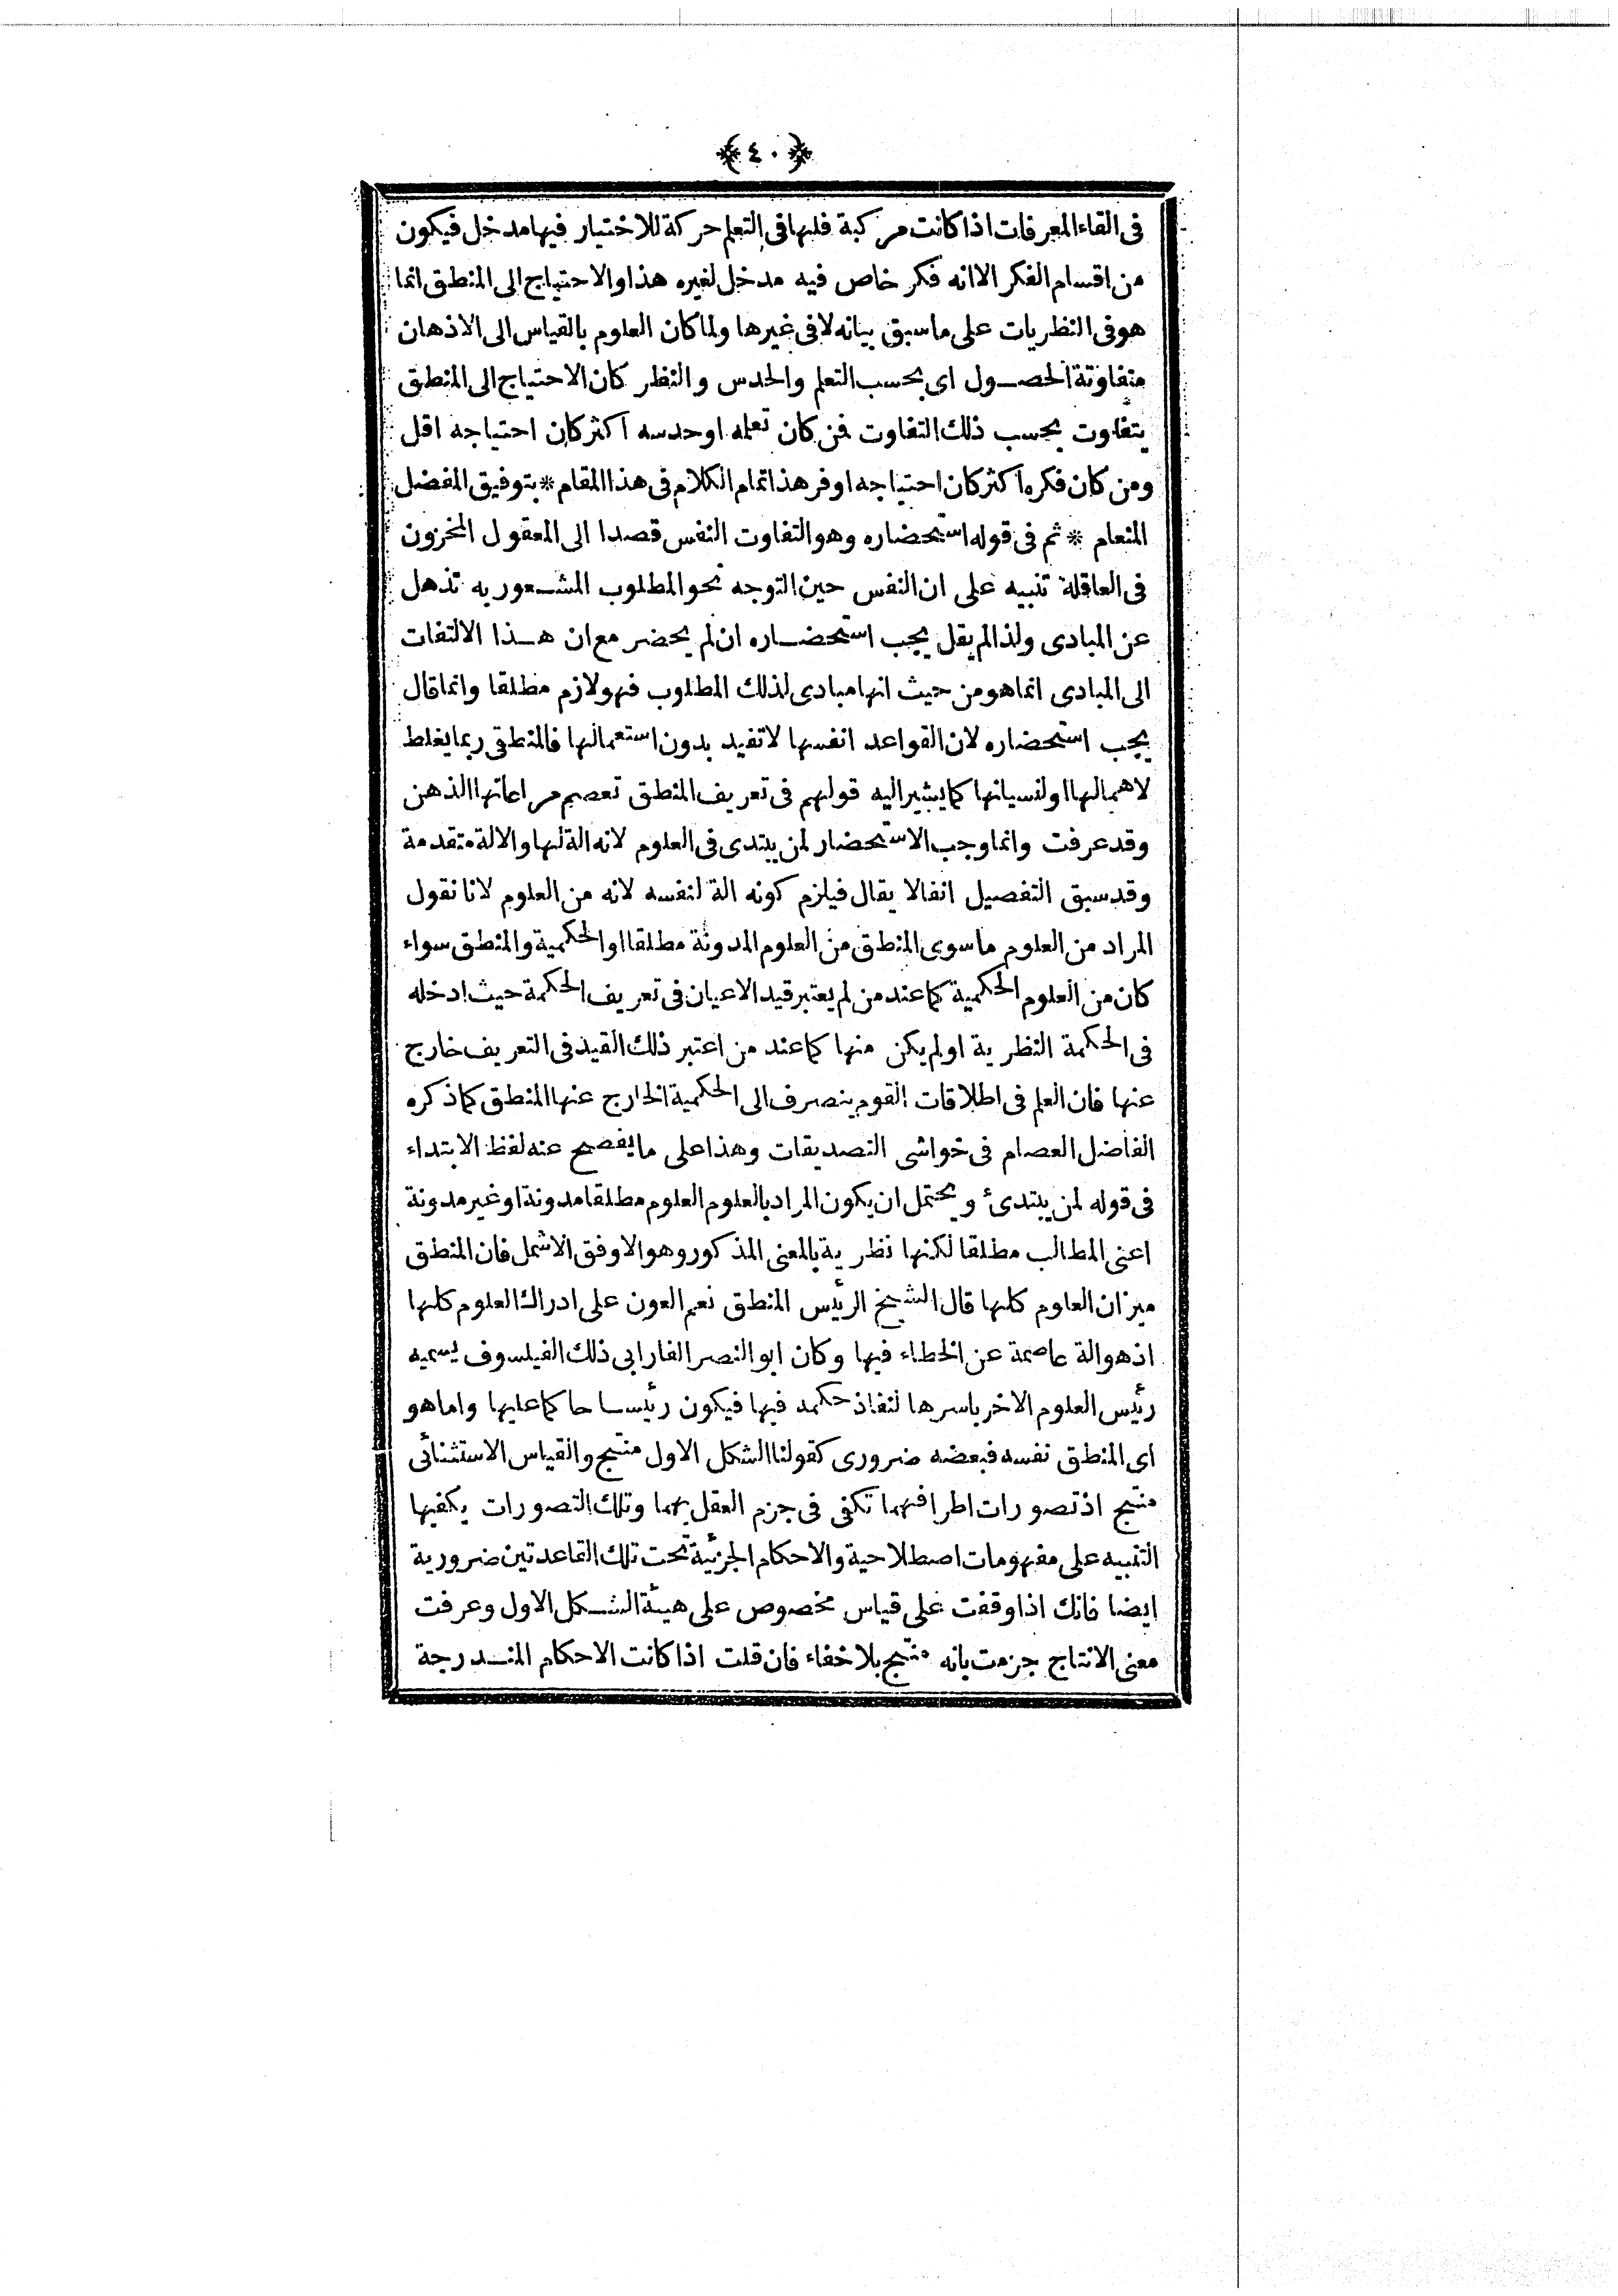 ﴿٤٠﴾
فى القاء المعرفات اذا كانت مركبة فلها فى التعلم حركة للاختيار فيها مدخل فيكون
من اقسام الفكر الا انه فكر خاص فيه مدخل لغيره هذا والاحتياج الى المنطق انما
هو فى النظريات على ما سبق بيانه لا فى غيرها ولما كان العلوم بالقياس الى الاذهان
متفاوتة الحصول اى بحسب التعلم والحدس والنظر كان الاحتياج الى المنطق
يتفاوت بحسب ذلك التفاوت فمن كان تعلمه او حدسه اكثر كان احتياجه اقل
ومن كان فكره اكثر كان احتياجه اوفر هذا تمام الكلام فى هذا المقام * بتوفيق المفضل
المنعام * ثم فى قوله استحضاره وهو التفاوت النفس قصدا الى المعقول المخزون
فى العاقلة تنبيه على ان النفس حين التوجه نحو المطلوب المشعور به تذهل
عن المبادى ولذا لم يقل يجب استحضاره ان لم يحضر مع ان هذا الالتفات
الى المبادى انما هو من حيث انها مبادى لذلك المطلوب فهو لازم مطلقا وانما قال
يجب استحضاره لان القواعد انفسها لا تفيد بدون استعمالها فالمنطقى ربما يغلط
لاهمالها او لنسيانها كما يشير اليه قولهم فى تعريف المنطق تعصم مراعاتها الذهن
وقد عرفت وانما وجب الاستحضار لمن يبتدى فى العلوم لانه الة لها والالة متقدمة
وقد سبق التفصيل انفا لا يقال فيلزم كونه الة لنفسه لانه من العلوم لانا نقول
المراد من العلوم ما سوى المنطق من العلوم المدونة مطلقا او الحكمية والمنطق سواء
كان من العلوم الحكمية كما عند من لم يعتبر قيد الاعيان فى تعريف الحكمة حيث ادخله
فى الحكمة النظرية او لم يكن منها كما عند من اعتبر ذلك القيد فى التعريف خارج
عنها فان العلم فى اطلاقات القوم ينصرف الى الحكمية الخارج عنها المنطق كما ذكره
الفاضل العصام فى حواشى التصديقات وهذا على ما يفصح عنه لفظ الابتداء
فى قوله لمن يبتدئ ويحتمل ان يكون المراد بالعلوم العلوم مطلقا مدونة او غير مدونة
اعنى المطالب مطلقا لكنها نظرية بالمعنى المذكور وهو الاوفق الاشمل فان المنطق
ميزان العلوم كلها قال الشيخ الرئيس المنطق نعم العون على ادراك العلوم كلها
اذ هو الة عاصمة عن الخطاء فيها وكان ابو النصر الفارابى ذلك الفيلسوف يسميه
رئيس العلوم الاخر باسرها لنفاذ حكمه فيها فيكون رئيسا حاكما عليها واما هو
اى المنطق نفسه فبعضه ضرورى كقولنا الشكل الاول منتج والقياس الاستثنائى
منتج اذ تصورات اطرافهما تكفى فى جزم العقل بهما وتلك التصورات يكفيها
التنبيه على مفهومات اصطلاحية والاحكام الجزئية تحت تلك القاعدتين ضرورية
ايضا فانك اذا وقفت على قياس مخصوص على هيئة الشكل الاول وعرفت
معنى الانتاج جزمت بانه منتج بلا خفاء فان قلت اذا كانت الاحكام المندرجة